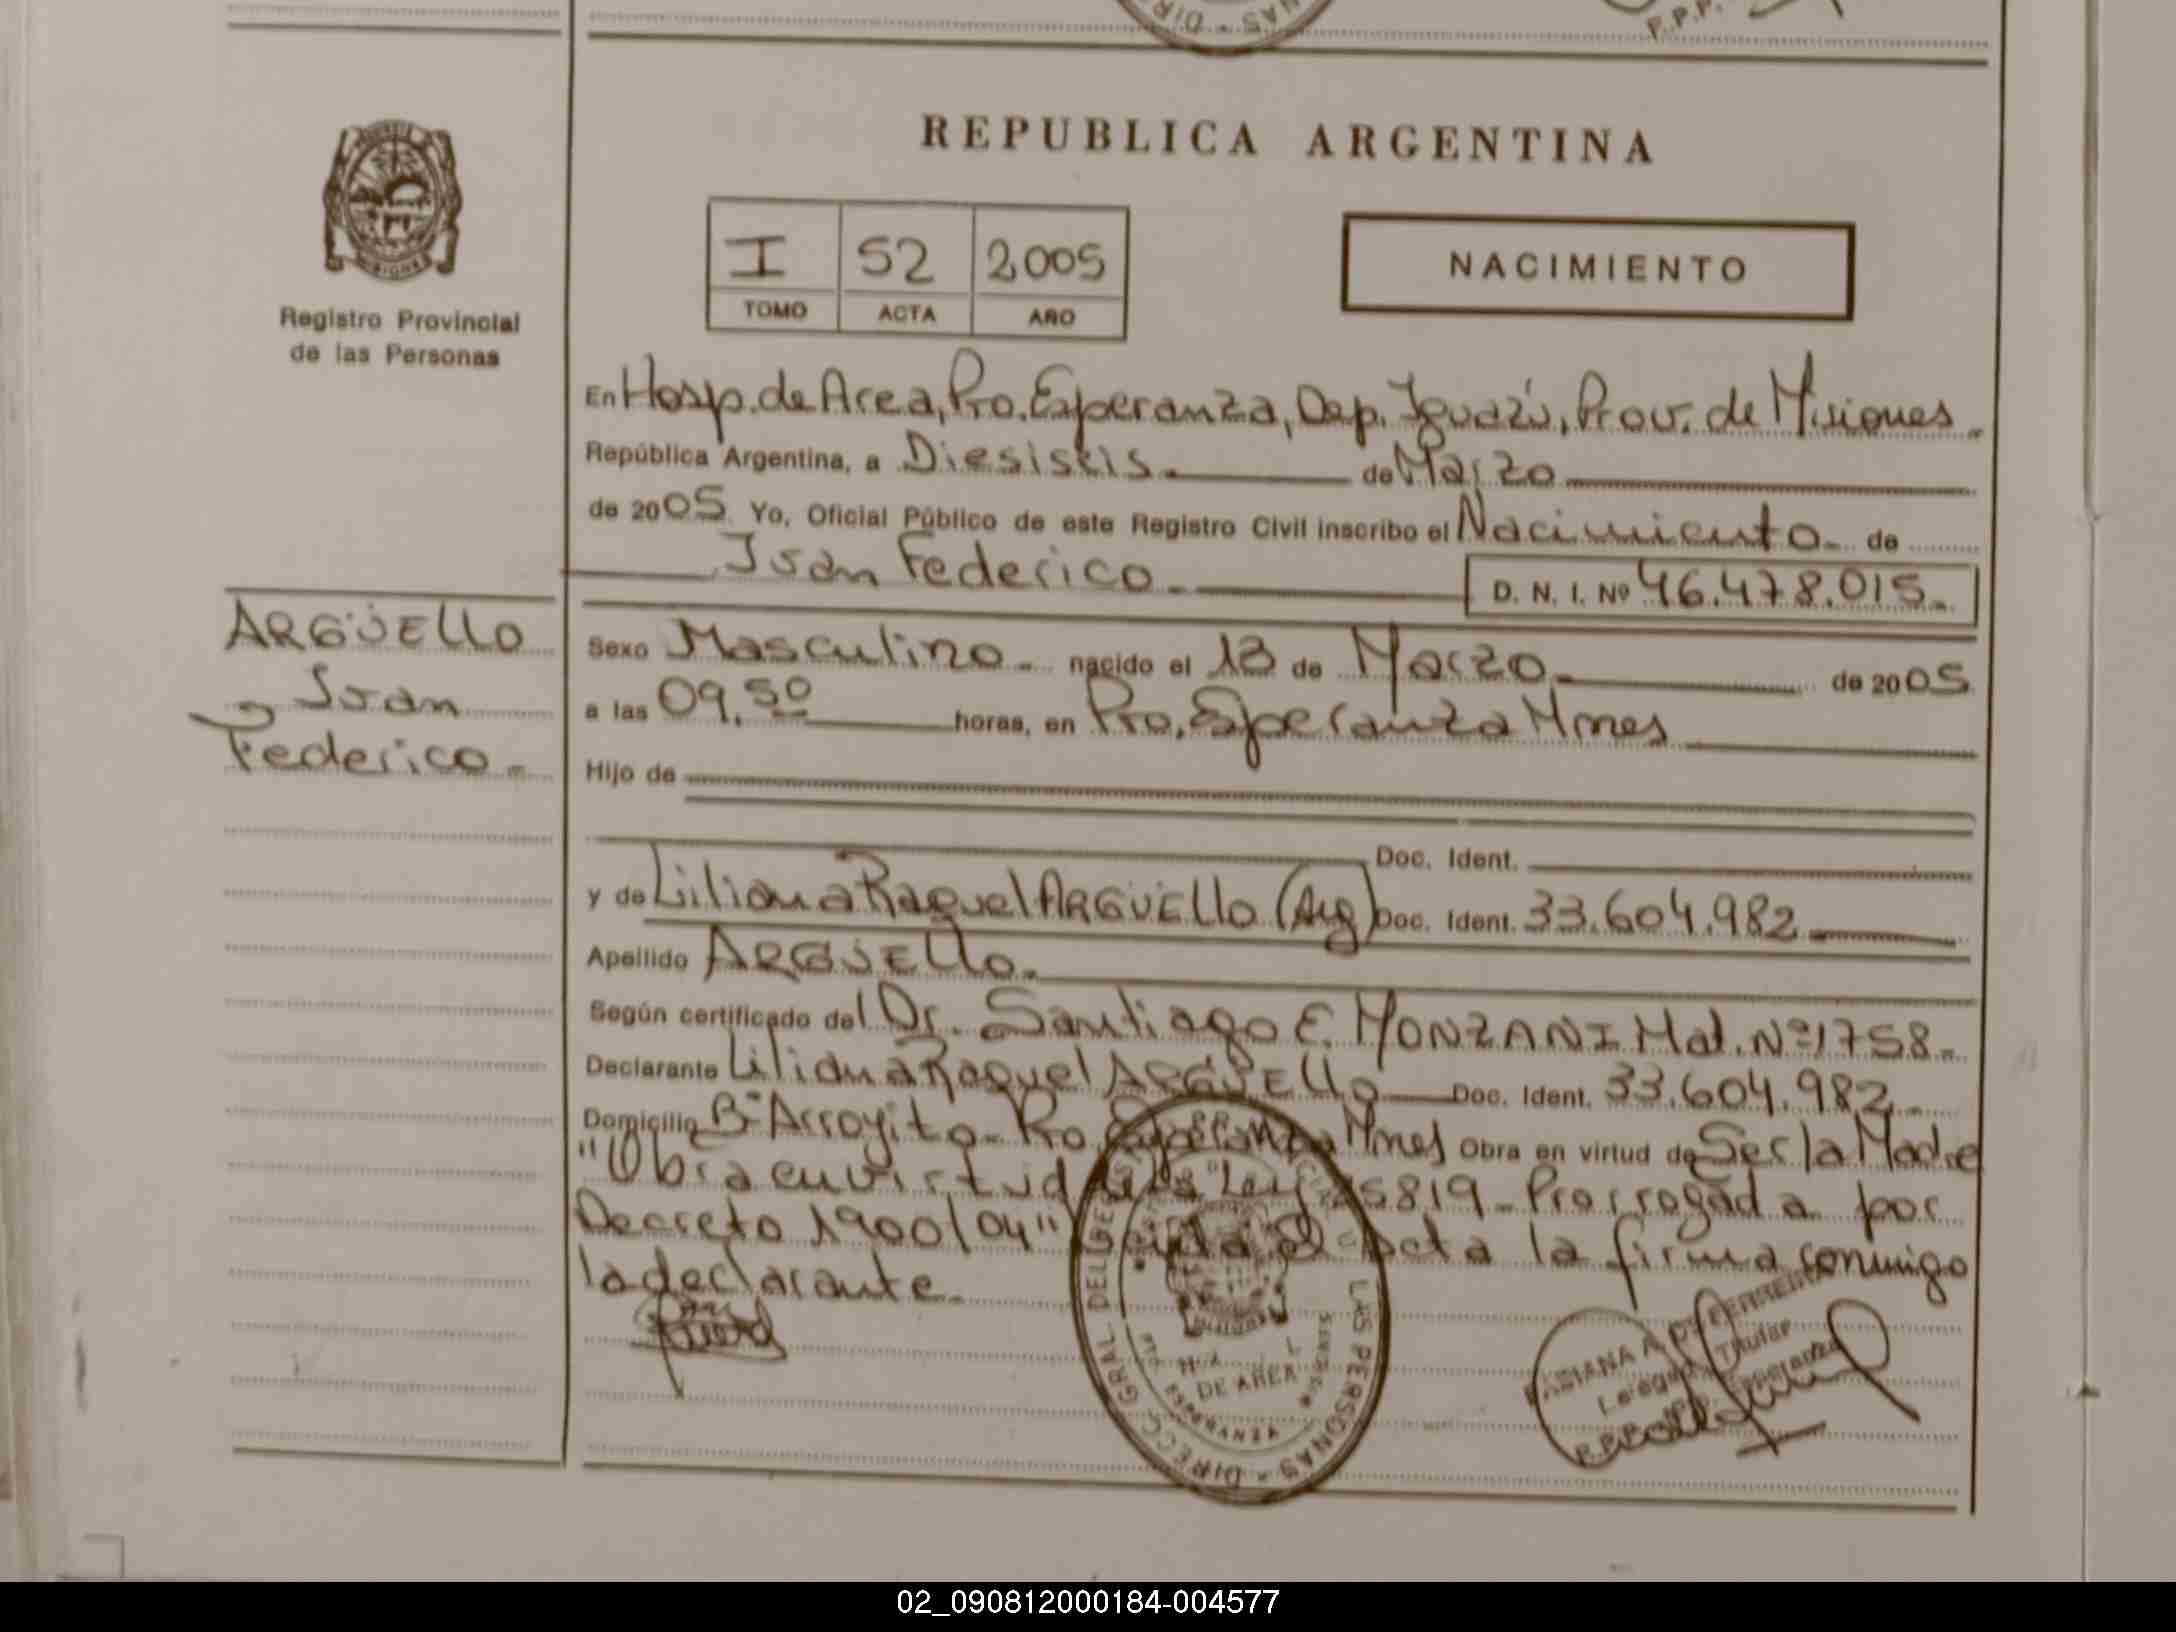 REPUBLICA ARGENTINA
I 52 2005
TOMO ACTA AÑO
NACIMIENTO
Registro Provincial
de las Personas
En Hosp. de Area, Pto. Esperanza, Dep. Iguazú, Prov. de Misiones.
República Argentina, a Diesiseis. de Marzo
de 2005 Yo, Oficial Público de este Registro Civil inscribo el Nacimiento. de
Ivan Federico. D. N. I. Nº 46.478.015.
ARGÜELLO
Ivan
Federico.
Sexo Masculino. nacido el 13 de Marzo. de 2005
a las 09.50 horas, en Pto. Esperanza Mnes
Hijo de
Doc. Ident.
y de Liliana Raquel ARGÜELLO (Arg) Doc. Ident. 33.604.982
Apellido ARGÜELLO.
Según certificado del Dr. Santiago E. MONZANI Mat. Nº 1758.
Declarante Liliana Raquel ARGÜELLO Doc. Ident. 33.604.982.
Domicilio Bº Arroyito. Pto. Esperanza Mnes Obra en virtud de Ser la Madre
"Obra en virtud de la Ley 25819 - Prorrogada por
Decreto 1900/04" acta la firma conmigo
la declarante.
DIRECC. GRAL. DEL
LAS PERSONAS
DE AREA
ESPERANZA
Titular
R.P.P.
02_090812000184-004577